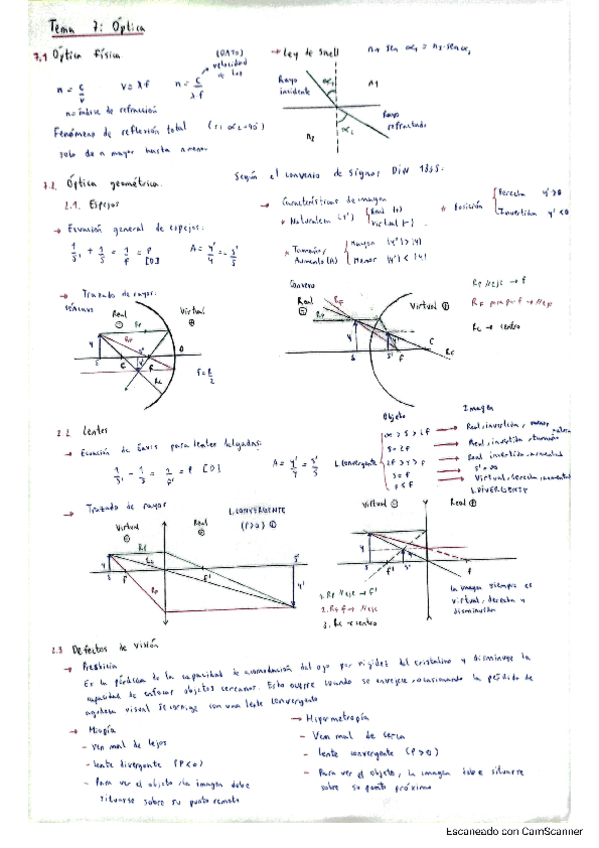 Tema 7: Óptica
7.1 Óptica física
n = c/v    v = λ·f    n = c/λ·f    (DATO) velocidad de luz
n = índice de refracción
Fenómeno de reflexión total (si α₂ = 90°)
solo de n mayor hasta n menor
→ Ley de Snell    n₁ sen α₁ = n₂ · sen α₂
Rayo incidente
α₁
n₁
n₂
α₂
Rayo refractado
7.2. Óptica geométrica.    Según el convenio de signos DIN 1335:
2.1. Espejos
→ Ecuación general de espejos:
1/s' + 1/s = 1/f = P [D]    A = y'/y = -s'/s
→ Características de imagen
* Naturaleza (s') Real (-) Virtual (+)
* Posición Derecha y' > 0 Invertida y' < 0
* Tamaño/Aumento (A) Mayor |y'| > |y| Menor |y'| < |y|
→ Trazado de rayos:
Cóncavo
Real ⊖
Virtual ⊕
f = R/2
Convexo
Real ⊖
Virtual ⊕
Rp // eje → f
RF → // eje
Rc → centro
2.2 Lentes
→ Ecuación de Gauss para lentes delgadas:
1/s' - 1/s = 1/f' = P [D]    A = y'/y = s'/s
Objeto
Imagen
L. convergente
∞ > s > 2f → Real, invertida, menor
s = 2f → Real, invertida, tamaño
2f > s > f → Real invertida, aumentada
s = f → s' = ∞
s < f → Virtual, derecha, aumentada
L. DIVERGENTE
→ Trazado de rayos
Virtual ⊖
Real ⊕
L. CONVERGENTE
(P>0) ⊕
Virtual ⊖
Real ⊕
1. Rp // eje → f'
2. RF f → // eje
3. Rc → centro
la imagen siempre es
virtual, derecha y
disminuida
2.3 Defectos de visión
→ Presbicia
Es la pérdida de la capacidad de acomodación del ojo por rigidez del cristalino y disminuye la
capacidad de enfocar objetos cercanos. Esto ocurre cuando se envejece, ocasionando la pérdida de
agudeza visual. Se corrige con una lente convergente
→ Miopía
- Ven mal de lejos
- lente divergente (P<0)
- Para ver el objeto, la imagen debe
situarse sobre su punto remoto
→ Hipermetropía
- Ven mal de cerca
- lente convergente (P>0)
- Para ver el objeto, la imagen debe situarse
sobre su punto próximo
Escaneado con CamScanner